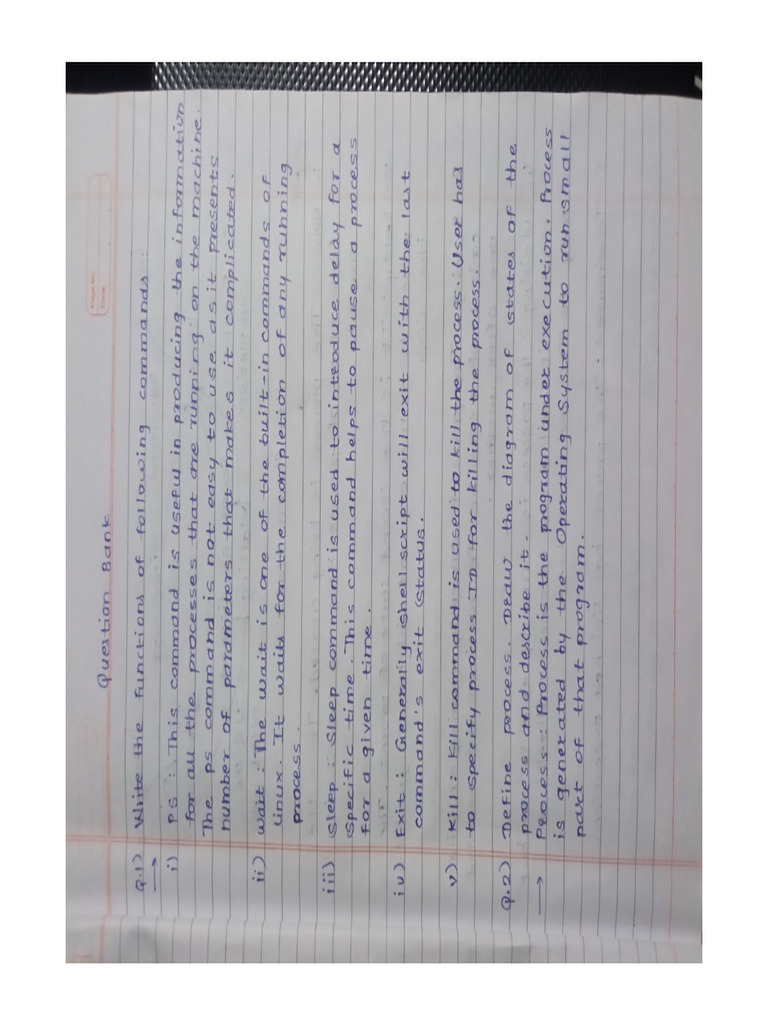 Question Bank
Q.1) Write the functions of following commands :
→
i) PS : This command is useful in producing the information
for all the processes that are running on the machine.
The ps command is not easy to use as it presents
number of parameters that makes it complicated.
ii) Wait : The wait is one of the built-in commands of
linux. It waits for the completion of any running
process.
iii) Sleep : Sleep command is used to introduce delay for a
specific time. This command helps to pause a process
for a given time.
iv) Exit : Generally shell script will exit with the last
command's exit status.
v) Kill : Kill command is used to kill the process. User has
to specify process ID for killing the process.
Q.2) Define process. Draw the diagram of states of the
process and describe it.
→ Process : Process is the program under execution. Process
is generated by the Operating System to run small
part of that program.